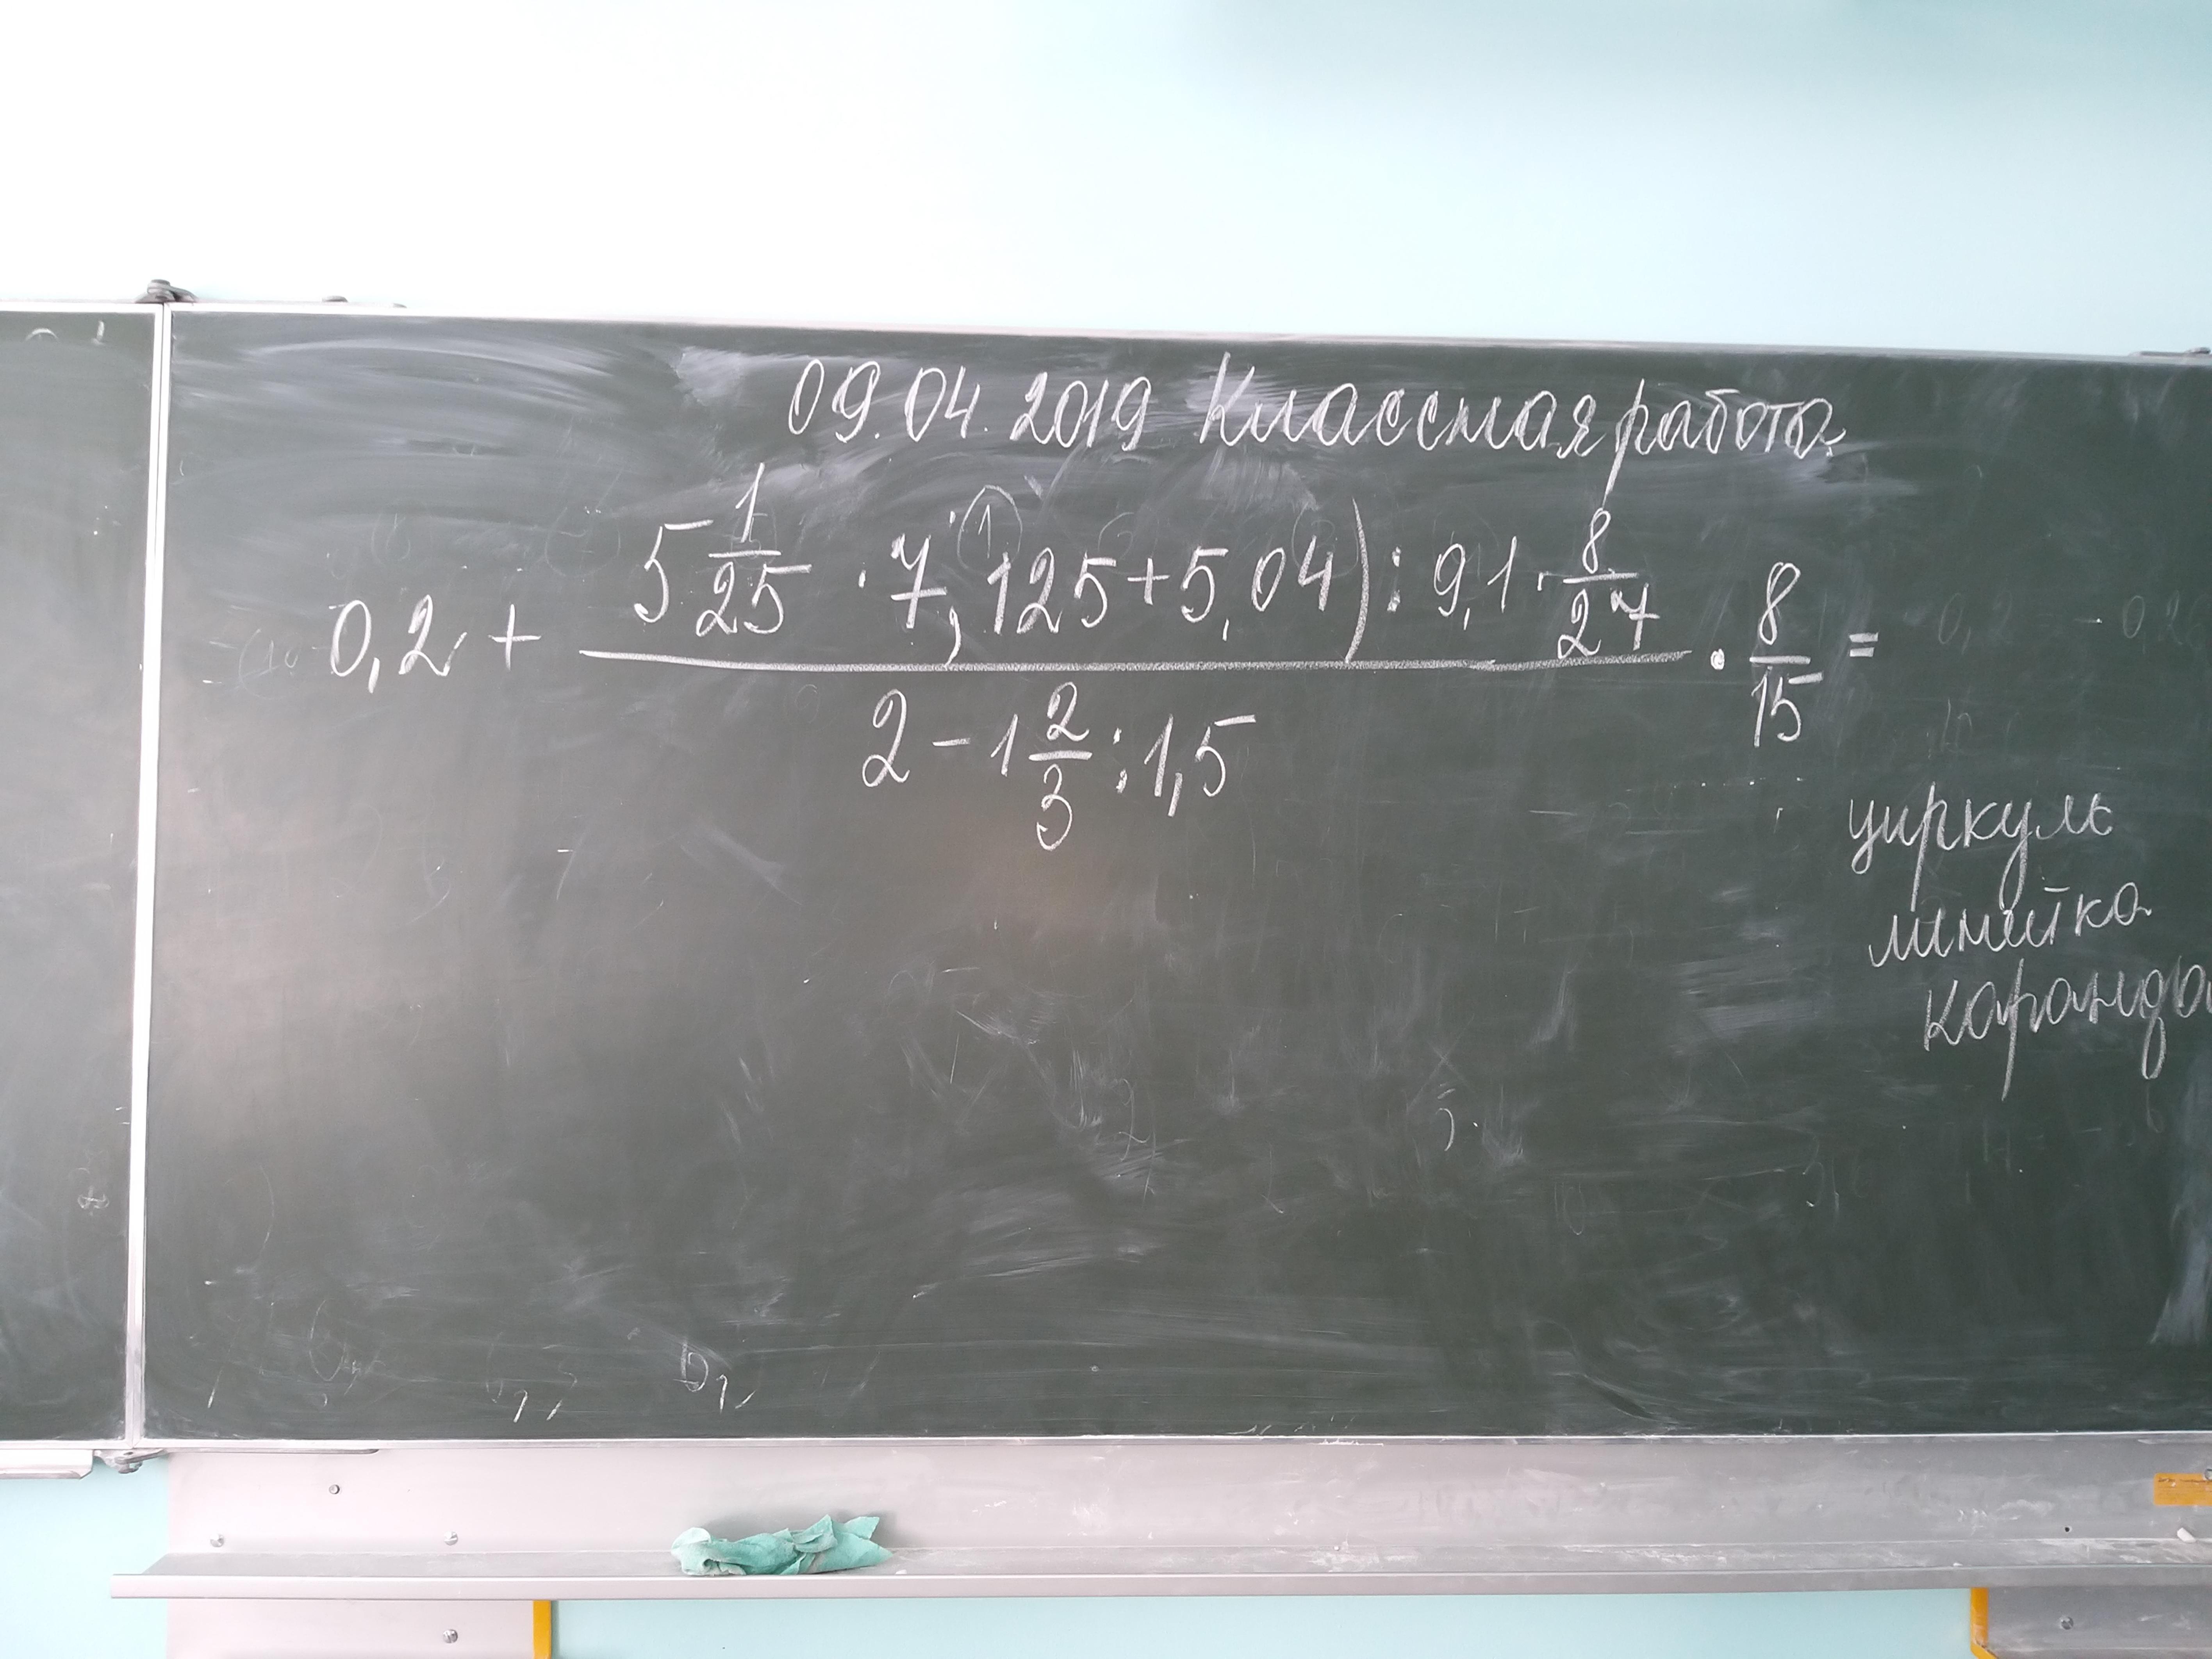 09.04.2019 Классная работа.
0,2 + (5 1/25 · 7,125 + 5,04) : 9,1 · 8/27 / (2 - 1 2/3 : 1,5) · 8/15 =
циркуль
линейка
каранда